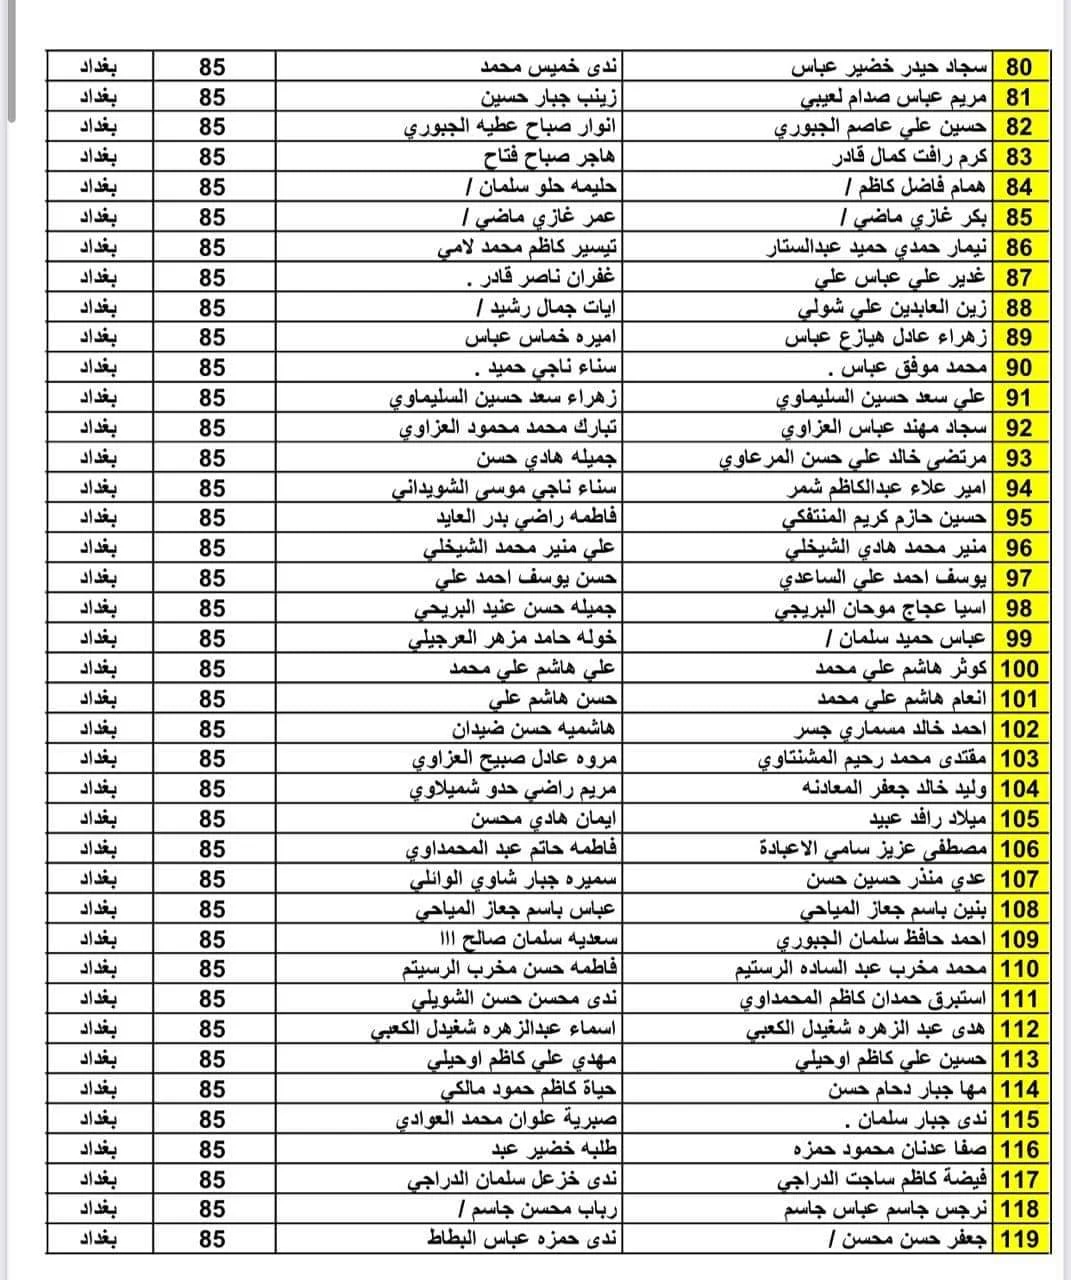 80 سجاد حيدر خضير عباس ندى خميس محمد 85 بغداد
81 مريم عباس صدام لعيبي زينب جبار حسين 85 بغداد
82 حسين علي عاصم الجبوري انوار صباح عطيه الجبوري 85 بغداد
83 كرم رافت كمال قادر هاجر صباح فتاح 85 بغداد
84 همام فاضل كاظم / حليمه حلو سلمان / 85 بغداد
85 بكر غازي ماضي / عمر غازي ماضي / 85 بغداد
86 نيمار حمدي حميد عبدالستار تيسير كاظم محمد لامي 85 بغداد
87 غدير علي عباس علي غفران ناصر قادر . 85 بغداد
88 زين العابدين علي شولي ايات جمال رشيد / 85 بغداد
89 زهراء عادل هيازع عباس اميره خماس عباس 85 بغداد
90 محمد موفق عباس . سناء ناجي حميد . 85 بغداد
91 علي سعد حسين السليماوي زهراء سعد حسين السليماوي 85 بغداد
92 سجاد مهند عباس العزاوي تبارك محمد محمود العزاوي 85 بغداد
93 مرتضى خالد علي حسن المرعاوي جميله هادي حسن 85 بغداد
94 امير علاء عبدالكاظم شمر سناء ناجي موسى الشويداني 85 بغداد
95 حسين حازم كريم المنتفكي فاطمه راضي بدر العايد 85 بغداد
96 منير محمد هادي الشيخلي علي منير محمد الشيخلي 85 بغداد
97 يوسف احمد علي الساعدي حسن يوسف احمد علي 85 بغداد
98 اسيا عجاج موحان البريجي جميله حسن عنيد البريحي 85 بغداد
99 عباس حميد سلمان / خوله حامد مزهر العرجيلي 85 بغداد
100 كوثر هاشم علي محمد علي هاشم علي محمد 85 بغداد
101 انعام هاشم علي محمد حسن هاشم علي 85 بغداد
102 احمد خالد مسماري جسر هاشميه حسن ضيدان 85 بغداد
103 مقتدى محمد رحيم المشنتاوي مروه عادل صبيح العزاوي 85 بغداد
104 وليد خالد جعفر المعادنه مريم راضي حدو شميلاوي 85 بغداد
105 ميلاد رافد عبيد ايمان هادي محسن 85 بغداد
106 مصطفى عزيز سامي الاعبادة فاطمه حاتم عبد المحمداوي 85 بغداد
107 عدي منذر حسين حسن سميره جبار شاوي الوائلي 85 بغداد
108 بنين باسم جعاز المياحي عباس باسم جعاز المياحي 85 بغداد
109 احمد حافظ سلمان الجبوري سعديه سلمان صالح ااا 85 بغداد
110 محمد مخرب عبد الساده الرستيم فاطمه حسن مخرب الرسيتم 85 بغداد
111 استبرق حمدان كاظم المحمداوي ندى محسن حسن الشويلي 85 بغداد
112 هدى عبد الزهره شغيدل الكعبي اسماء عبدالزهره شغيدل الكعبي 85 بغداد
113 حسين علي كاظم اوحيلي مهدي علي كاظم اوحيلي 85 بغداد
114 مها جبار دحام حسن حياة كاظم حمود مالكي 85 بغداد
115 ندى جبار سلمان . صبرية علوان محمد العوادي 85 بغداد
116 صفا عدنان محمود حمزه طلبه خضير عبد 85 بغداد
117 فيضة كاظم ساجت الدراجي ندى خزعل سلمان الدراجي 85 بغداد
118 نرجس جاسم عباس جاسم رباب محسن جاسم / 85 بغداد
119 جعفر حسن محسن / ندى حمزه عباس البطاط 85 بغداد